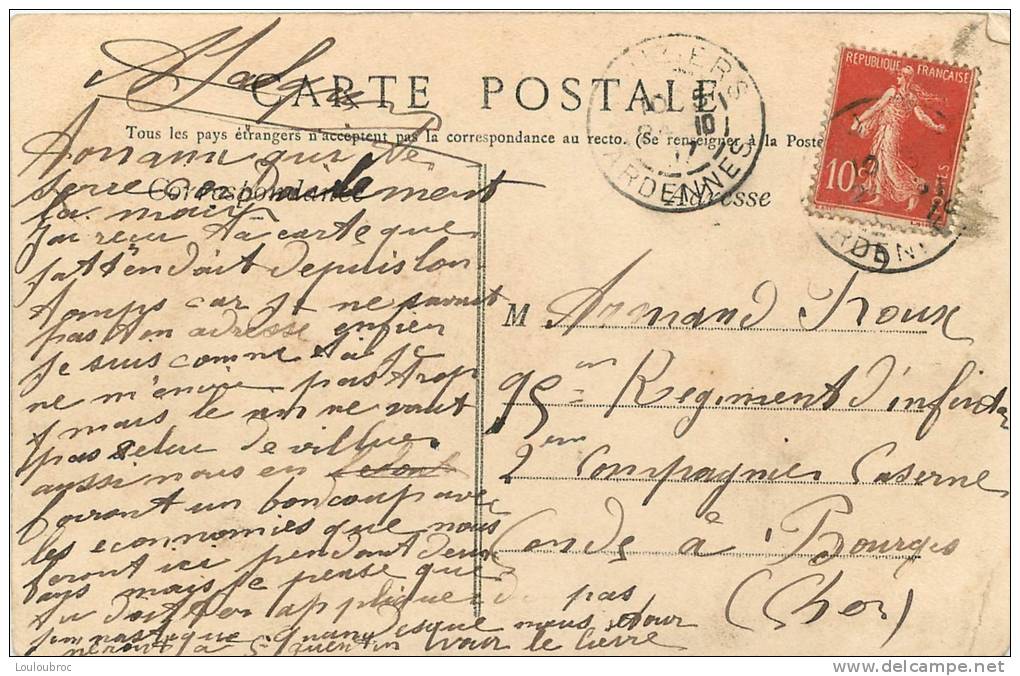 CARTE POSTALE
Tous les pays étrangers n'acceptent pas la correspondance au recto. (Se renseigner à la Poste
Correspondance
Adresse
ARDENNES
10
RÉPUBLIQUE FRANÇAISE
10
ARDENN
qui te
serre la main
J'ai reçu ta carte que
j'attendait depuis lon
temps car je ne savait
pas ton adresse enfien
je suis comme toi je
ne m'envie pas trop
mais le vin ne vaut
pas selui de
aussi nous en
boiront un bon coup avec
les econnomies que nous
feront ici pendant deux
ans mais je pense que
tu doit ten appliquer de pas
quand esque nous
à S Quentin voir le lievre
M Armand Roux
95em Regiment d'infanta
2eme Compagnie Caserne
Conde à Bourges
(Cher)
Louloubroc
www.delcampe.net